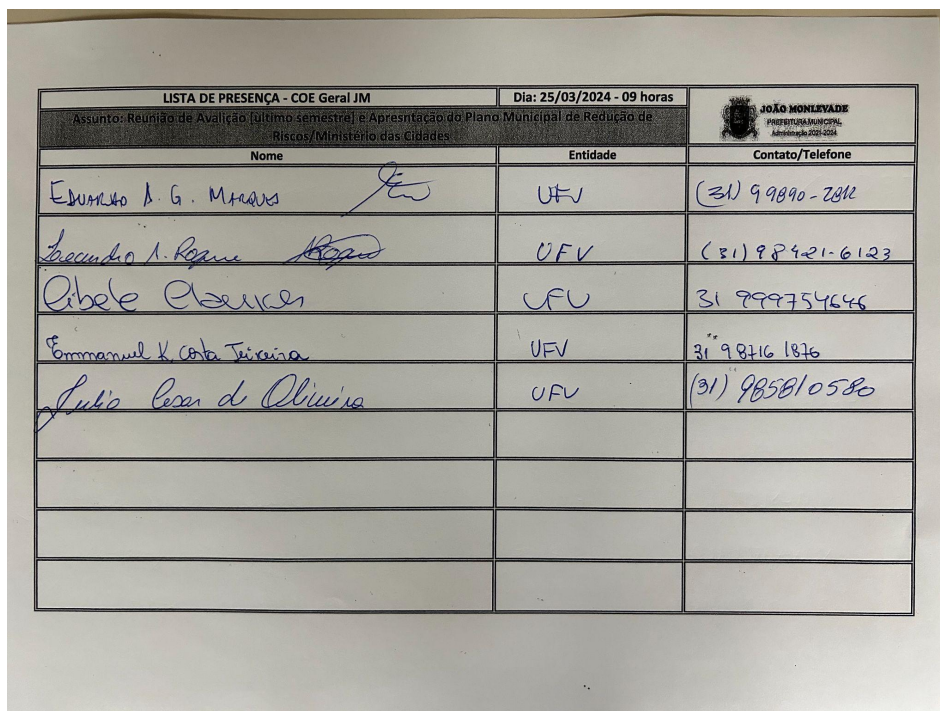 LISTA DE PRESENÇA - COE Geral JM Dia: 25/03/2024 - 09 horas
JOÃO MONLEVADE
PREFEITURA MUNICIPAL
Administração 2021-2024
Assunto: Reunião de Avalição (último semestre) e Apresntação do Plano Municipal de Redução de
Riscos/Ministério das Cidades
Nome Entidade Contato/Telefone
EDUARDO A. G. MARQUES UFV (31) 99890-
Leandro A. Roque UFV (31) 98421-6123
Cibele UFV 31 999754646
Emmanuel K. Costa Teixeira UFV 31 98716 1876
Julio Cesar de Oliveira UFV (31) 985810580